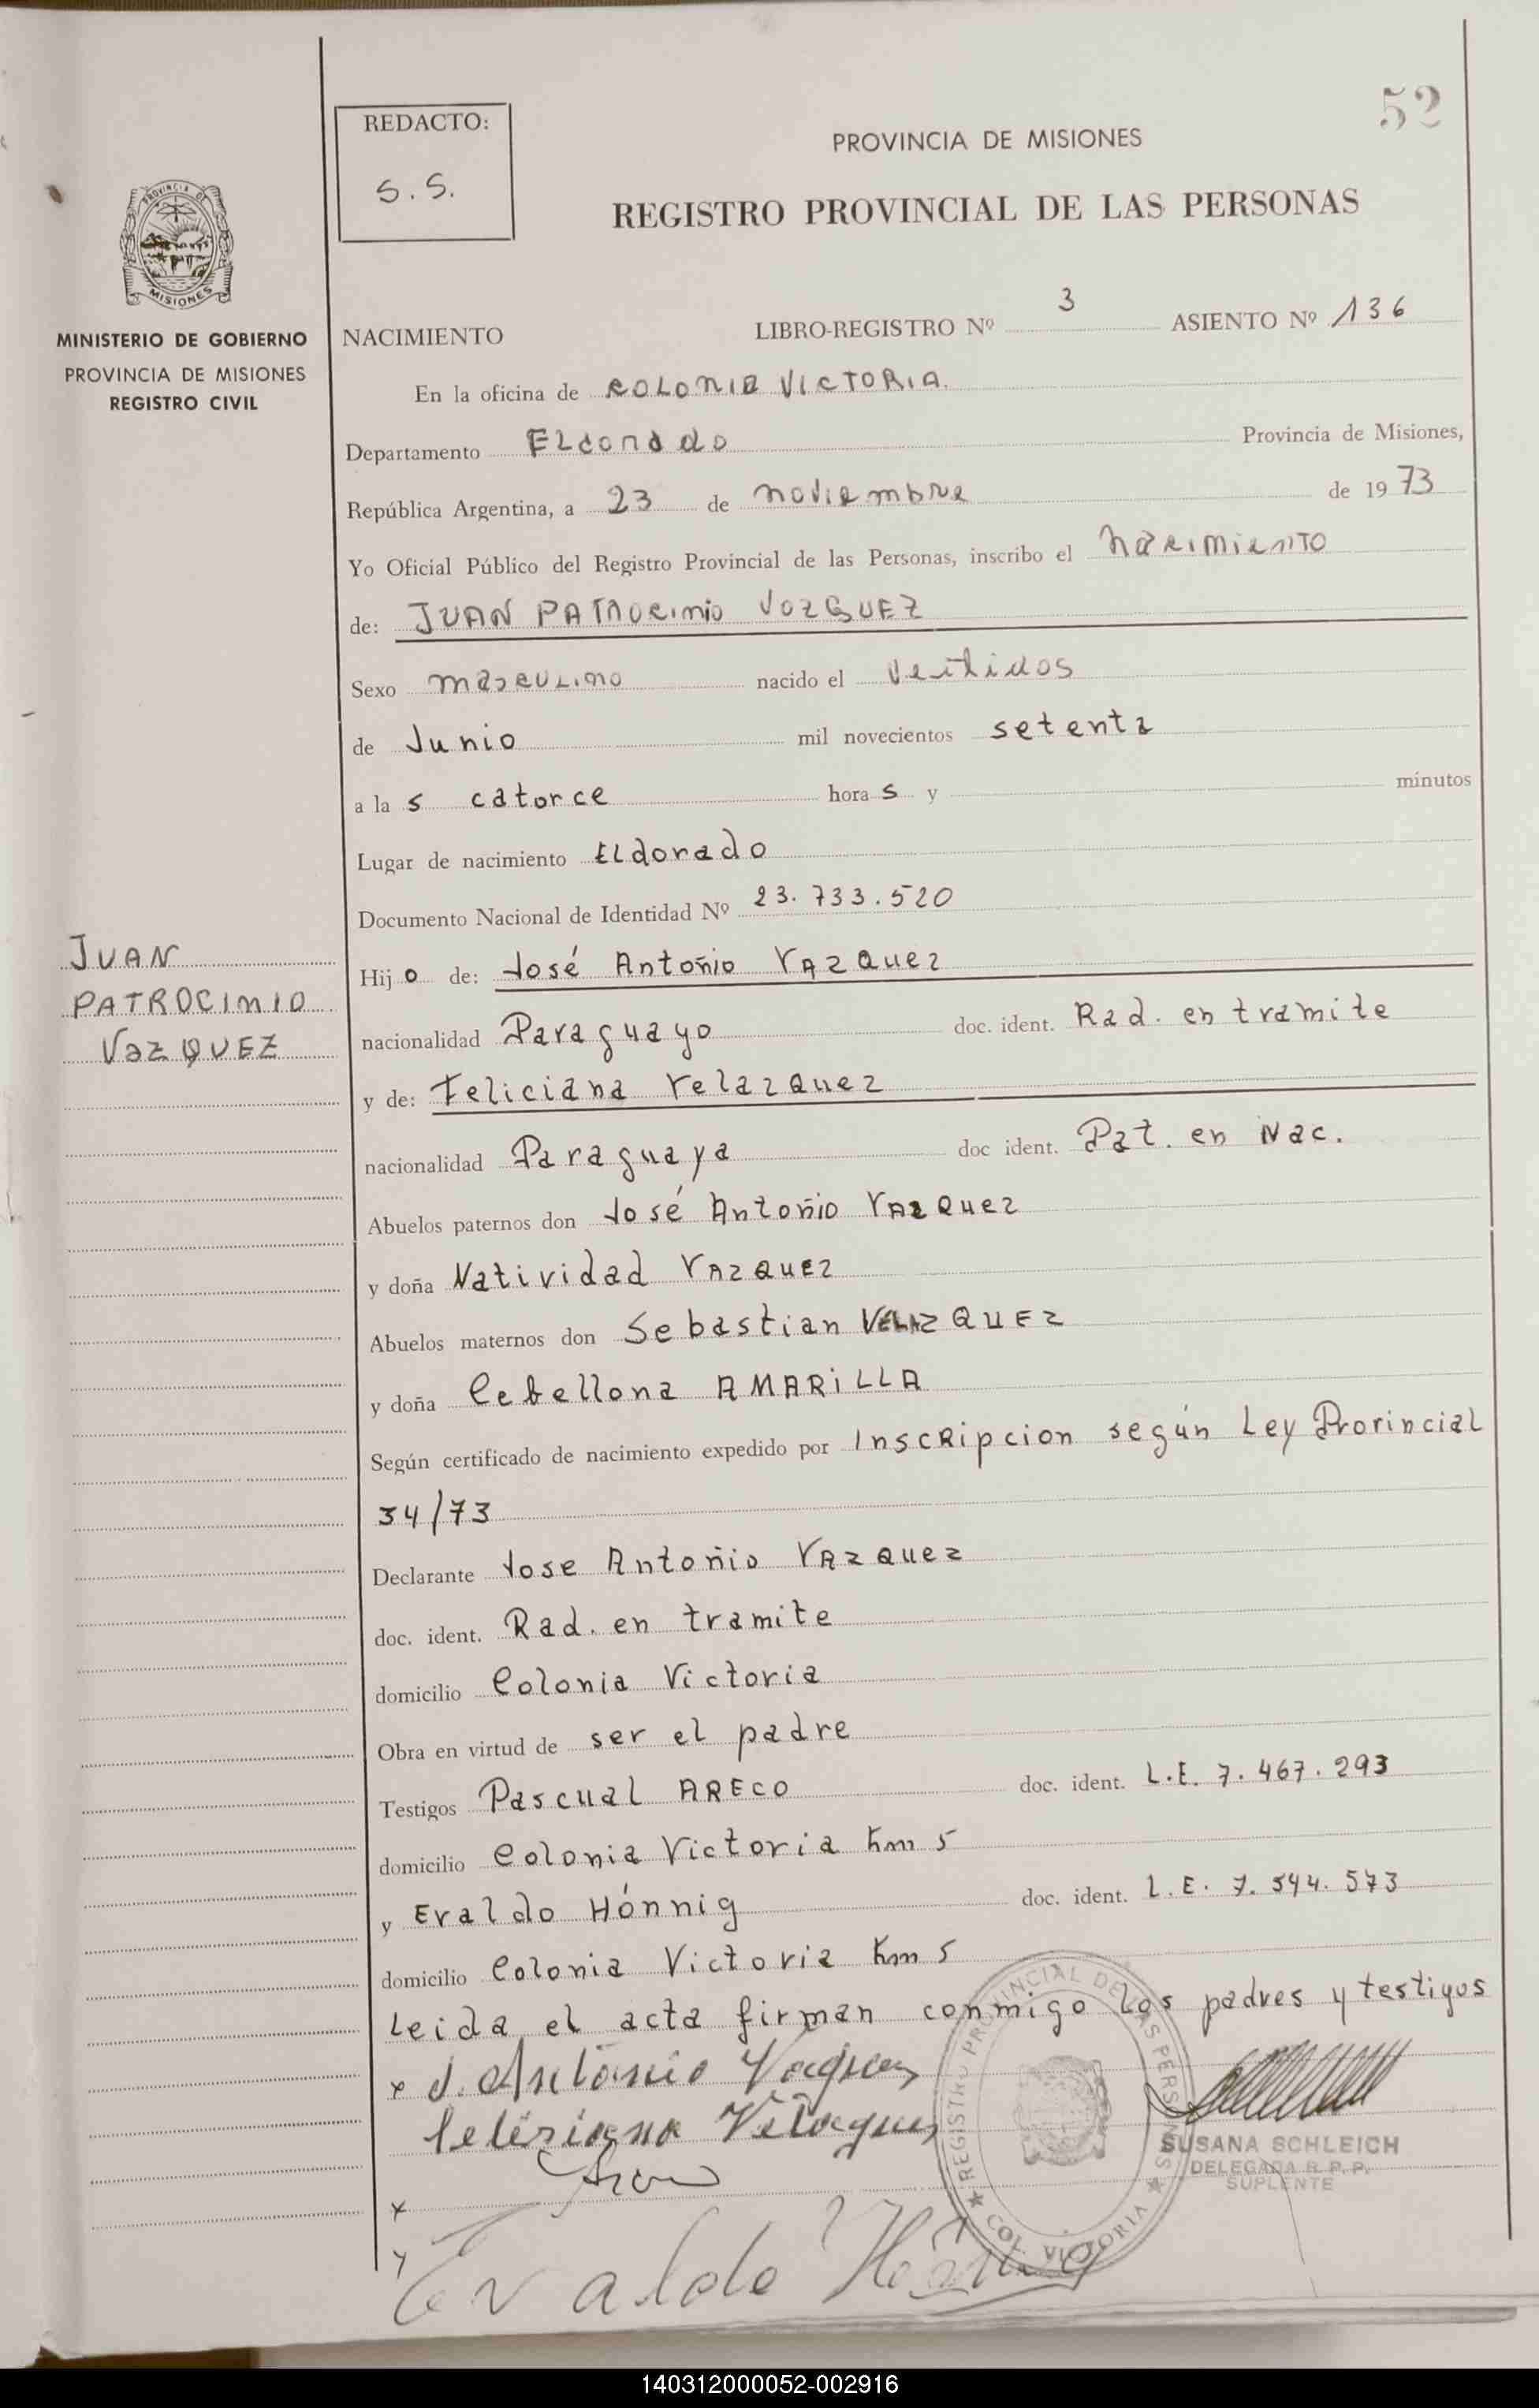 52
REDACTO:
S. S.
PROVINCIA DE MISIONES
REGISTRO PROVINCIAL DE LAS PERSONAS
PROVINCIA DE
MISIONES
MINISTERIO DE GOBIERNO
PROVINCIA DE MISIONES
REGISTRO CIVIL
NACIMIENTO LIBRO-REGISTRO Nº 3 ASIENTO Nº 136
En la oficina de COLONIA VICTORIA.
Departamento ELdorado Provincia de Misiones,
República Argentina, a 23 de noviembre de 1973
Yo Oficial Público del Registro Provincial de las Personas, inscribo el nacimiento
de: JUAN PATROCINIO VAZQUEZ
Sexo masculino nacido el veitidos
de Junio mil novecientos setenta
a la s catorce hora s y minutos
Lugar de nacimiento ELdorado
Documento Nacional de Identidad Nº 23.733.520
JUAN
PATROCINIO
VAZQUEZ
Hij o de: José Antoñio VAZQuez
nacionalidad Paraguayo doc. ident. Rad. en tramite
y de: Feliciana Velazquez
nacionalidad Paraguaya doc ident. Pat. en Nac.
Abuelos paternos don José Antoñio VAZQuez
y doña Natividad VAZQUEZ
Abuelos maternos don Sebastian VELAZQUEZ
y doña Cebellona AMARiLLA
Según certificado de nacimiento expedido por Inscripcion según Ley Provincial
34/73
Declarante Jose Antoñio VAZQuez
doc. ident. Rad. en tramite
domicilio Colonia Victoria
Obra en virtud de ser el padre
Testigos Pascual ARECO doc. ident. L.E. 7.467.293
domicilio Colonia Victoria Km 5
y Evaldo Hónnig doc. ident. L.E. 7.544.573
domicilio Colonia Victoria Km 5
Leida el acta firman conmigo los padres y testigos
x J. Antonio Vazquez
Velazquez
SUSANA SCHLEICH
DELEGADA R.P.P.
SUPLENTE
x
REGISTRO PROVINCIAL DE LAS PERSONAS
COL. VICTORIA
y Evaldo Hönnig
140312000052-002916